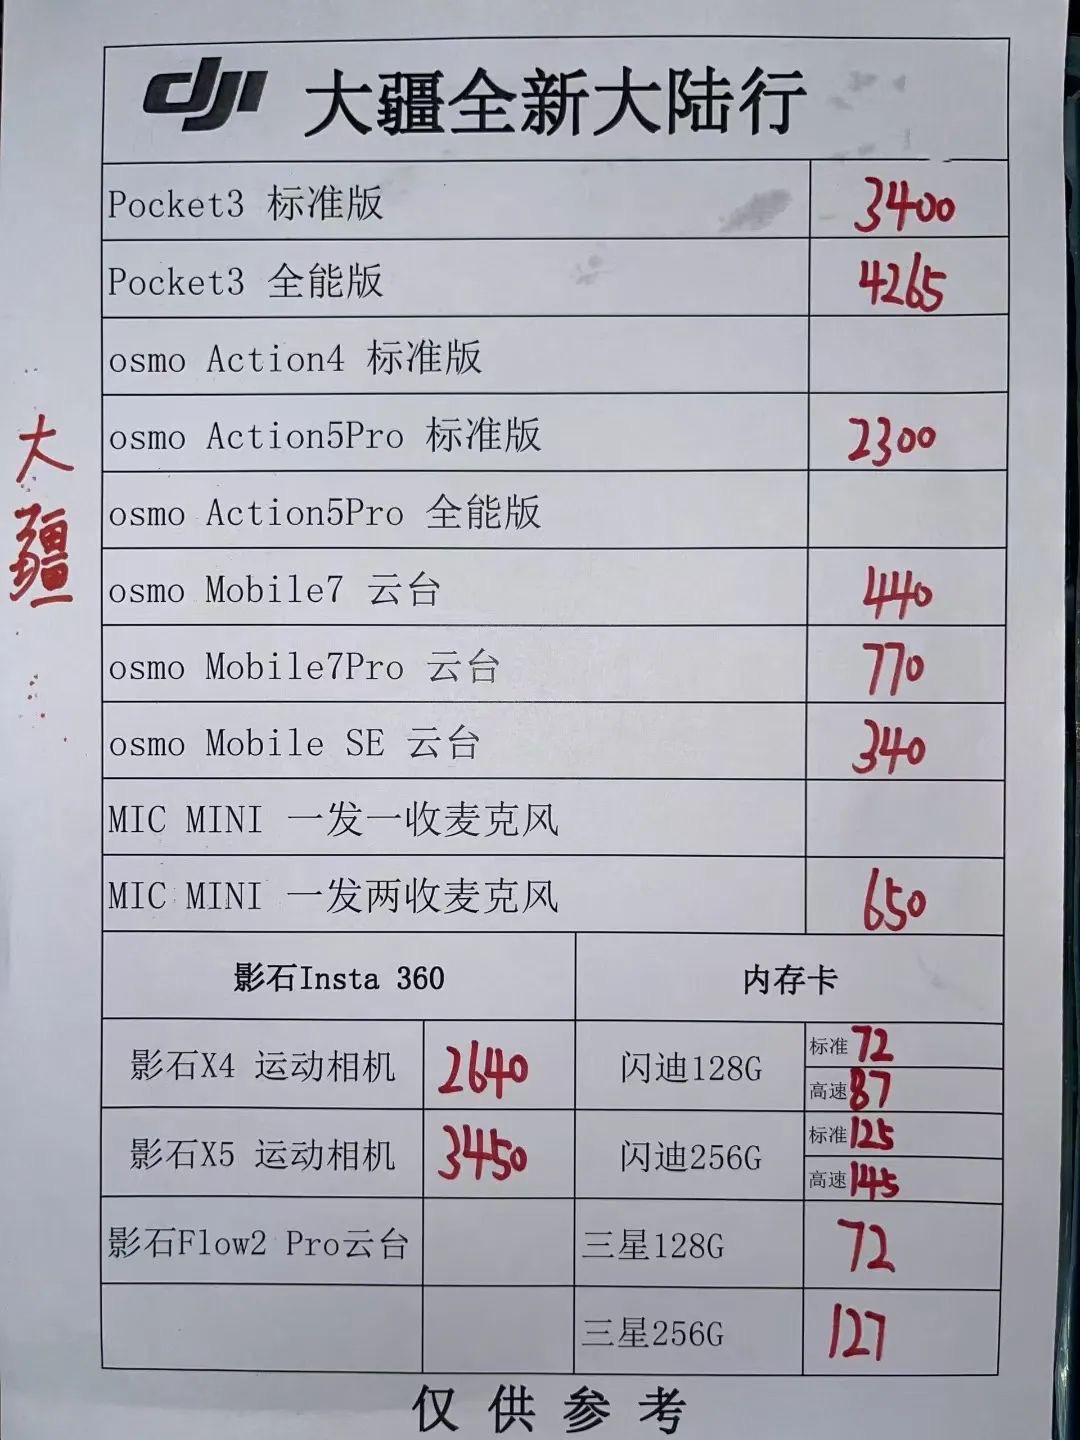 dji 大疆全新大陆行
Pocket3 标准版 3400
Pocket3 全能版 4265
osmo Action4 标准版
osmo Action5Pro 标准版 2300
osmo Action5Pro 全能版
osmo Mobile7 云台 440
osmo Mobile7Pro 云台 770
osmo Mobile SE 云台 340
MIC MINI 一发一收麦克风
MIC MINI 一发两收麦克风 650
大疆
影石Insta 360 内存卡
影石X4 运动相机 2640 闪迪128G 标准 72
高速 87
影石X5 运动相机 3450 闪迪256G 标准 125
高速 145
影石Flow2 Pro云台 三星128G 72
三星256G 127
仅供参考